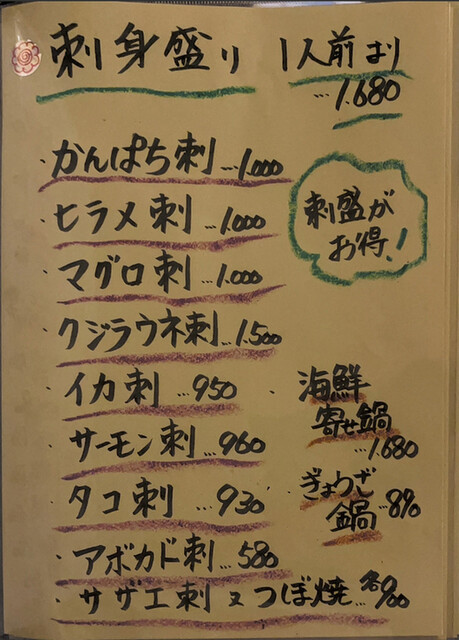 刺身盛り 1人前より
…1.680
・かんぱち刺…1.000
・ヒラメ刺…1.000
・マグロ刺…1.000
・クジラウネ刺…1.500
・イカ刺…950
・サーモン刺…960
・タコ刺…930
・アボカド刺…580
・サザエ刺又つぼ焼…各900
刺盛が
お得!
・海鮮
寄せ鍋
…1.680
・ぎょうざ
鍋…890